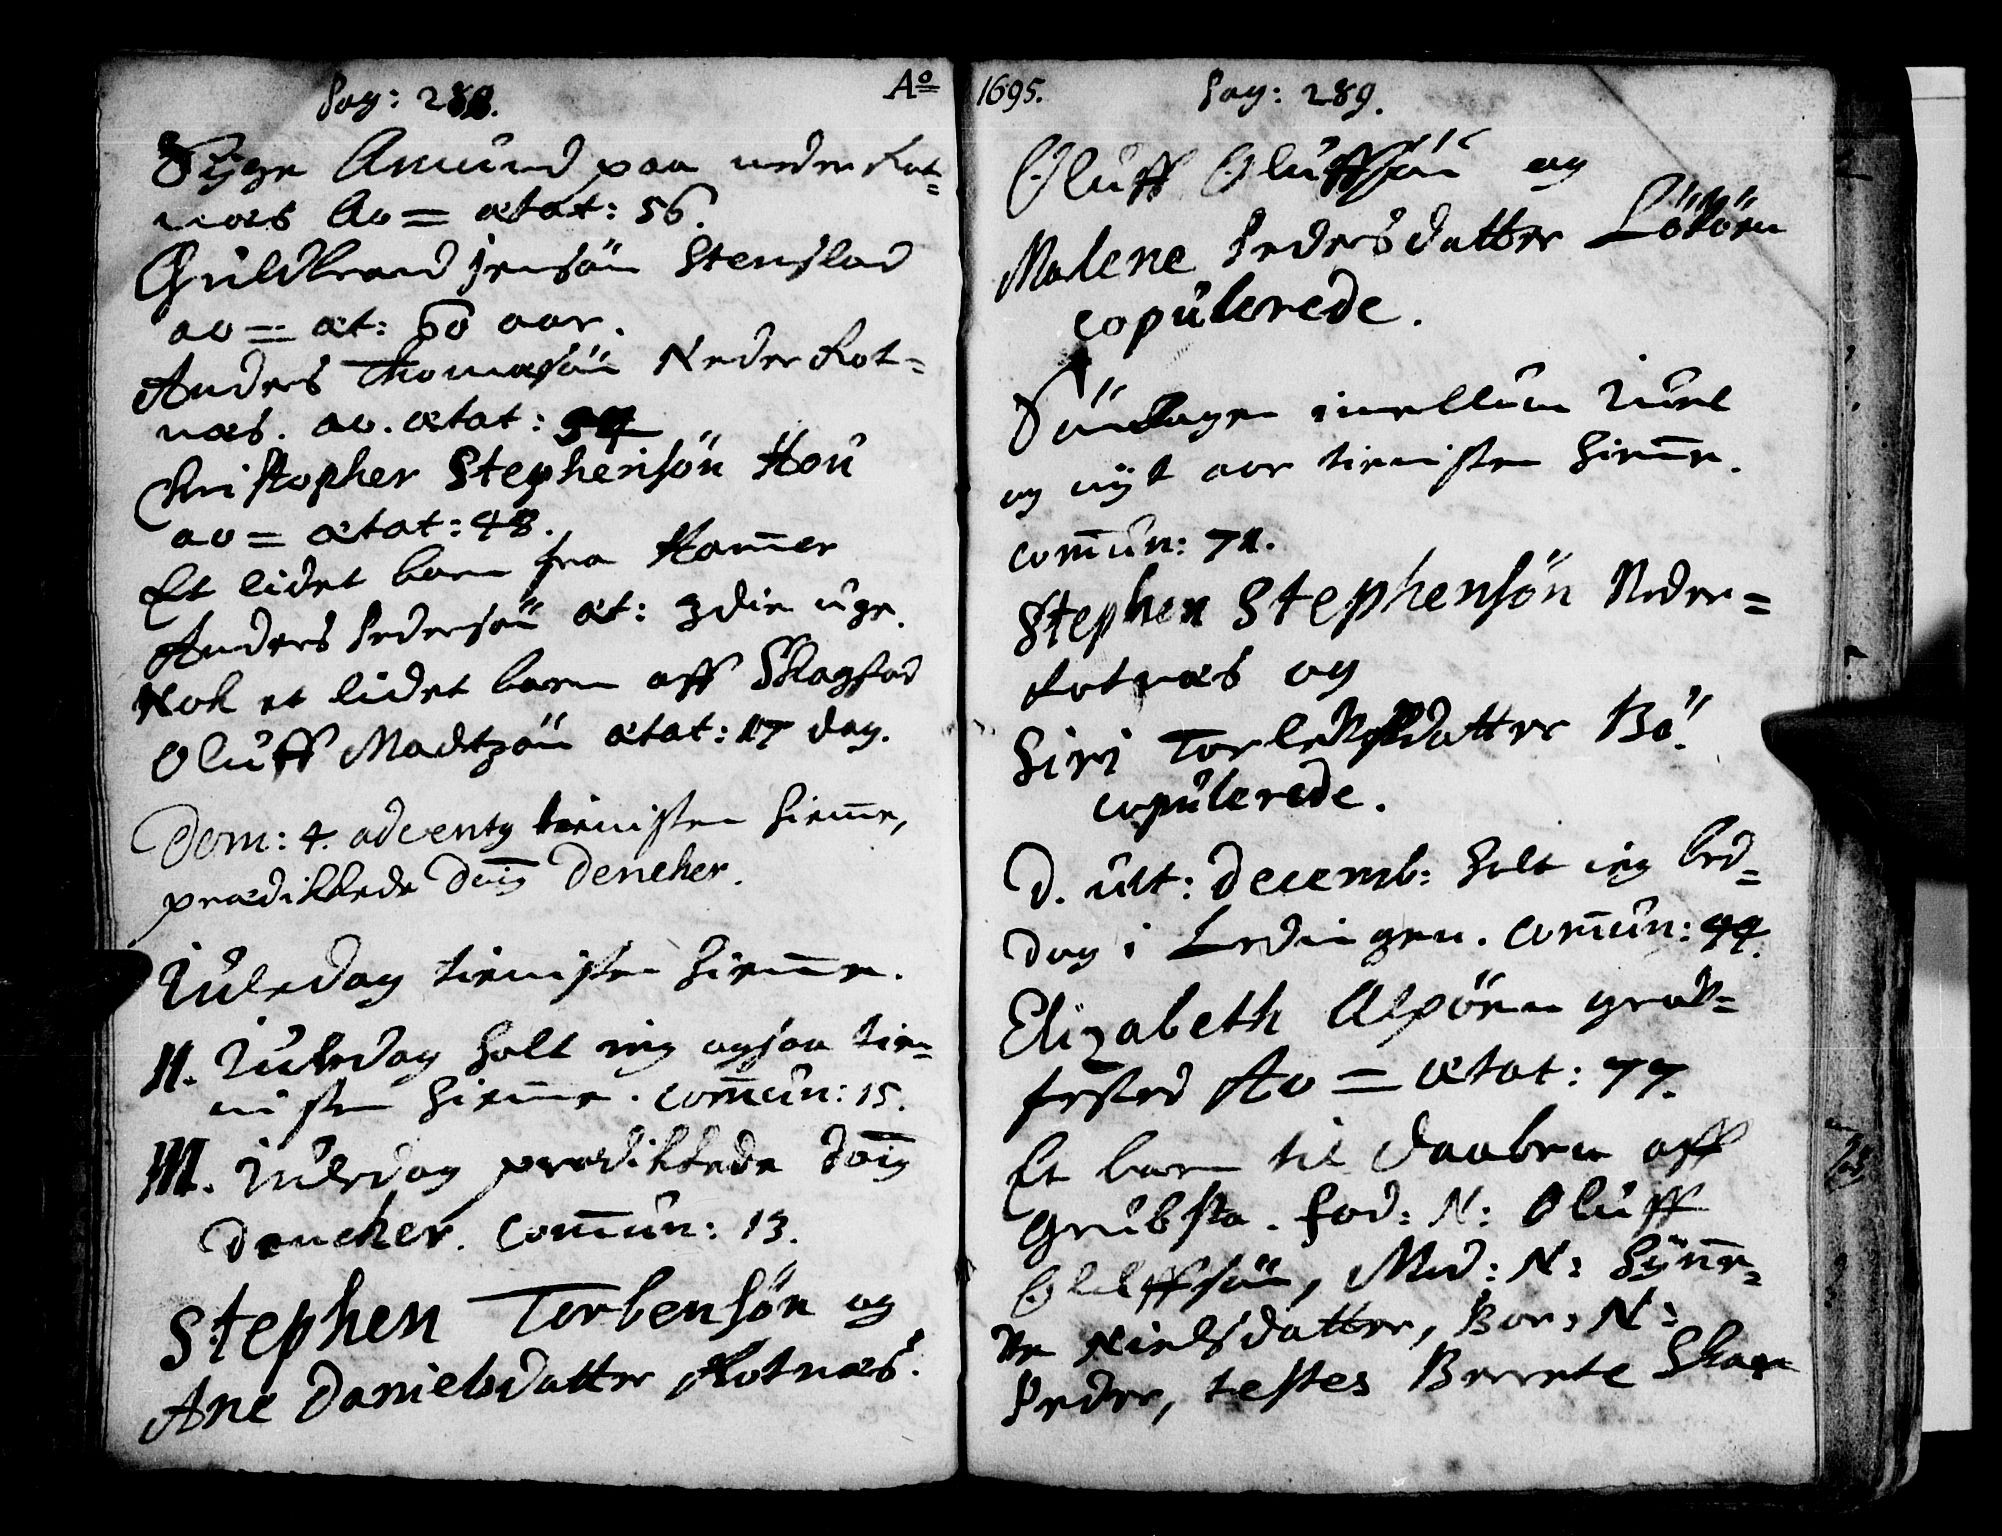 Pag: 288.
Amund paa neder Rot=
næs Ao = ætat: 56.
Guldbrand Jensön Stenslad
ao = æt: 60 aar.
Anders Thomasön Neder Rot=
næs. ao. ætat:
Christopher Stephensön Hou
ao = ætat: 48.
Et lidet barn fra Ham̅er
Anders Pedersön æt: 3die uge.
Nok et lidet barn aff Skagstad
Oluff Madtzön ætat: 17 dag.
Dom: 4. adventg tienisten hiem̅e,
prædikkede Deneker.
Juledag tienisten hiem̅e.
II. Juledag holt ieg ogsaa tie=
nisten hiem̅e. com̅un: 15.
III. Juledag prædikkede
Deneker. Com̅un: 13.
Stephen Torbensön og
Ane Danielsdatter Rotnæs.
Aº 1695.
Pag: 289.
Oluff Oluffsön og
Malene Pedersdatter
copulerede.
Söndagen imellum Juel
og nyt aar tienisten hiem̅e.
com̅un: 71.
Stephen Stephensön Neder=
Rotnæs og
Siri datter Bö.
copulerede.
D. ult: Decemb: holt ieg bed=
dag i Ledingen. Com̅un: 44.
Elizabeth Alpöen graf=
fested Ao = ætat: 77.
Et barn til daaben aff
Grubsta. Fad: N: Oluff
Oluffsön, Mod: N: Syn̅e=
ve Nielsdatter, Bar: N:
Peder, testes Berrete Skage